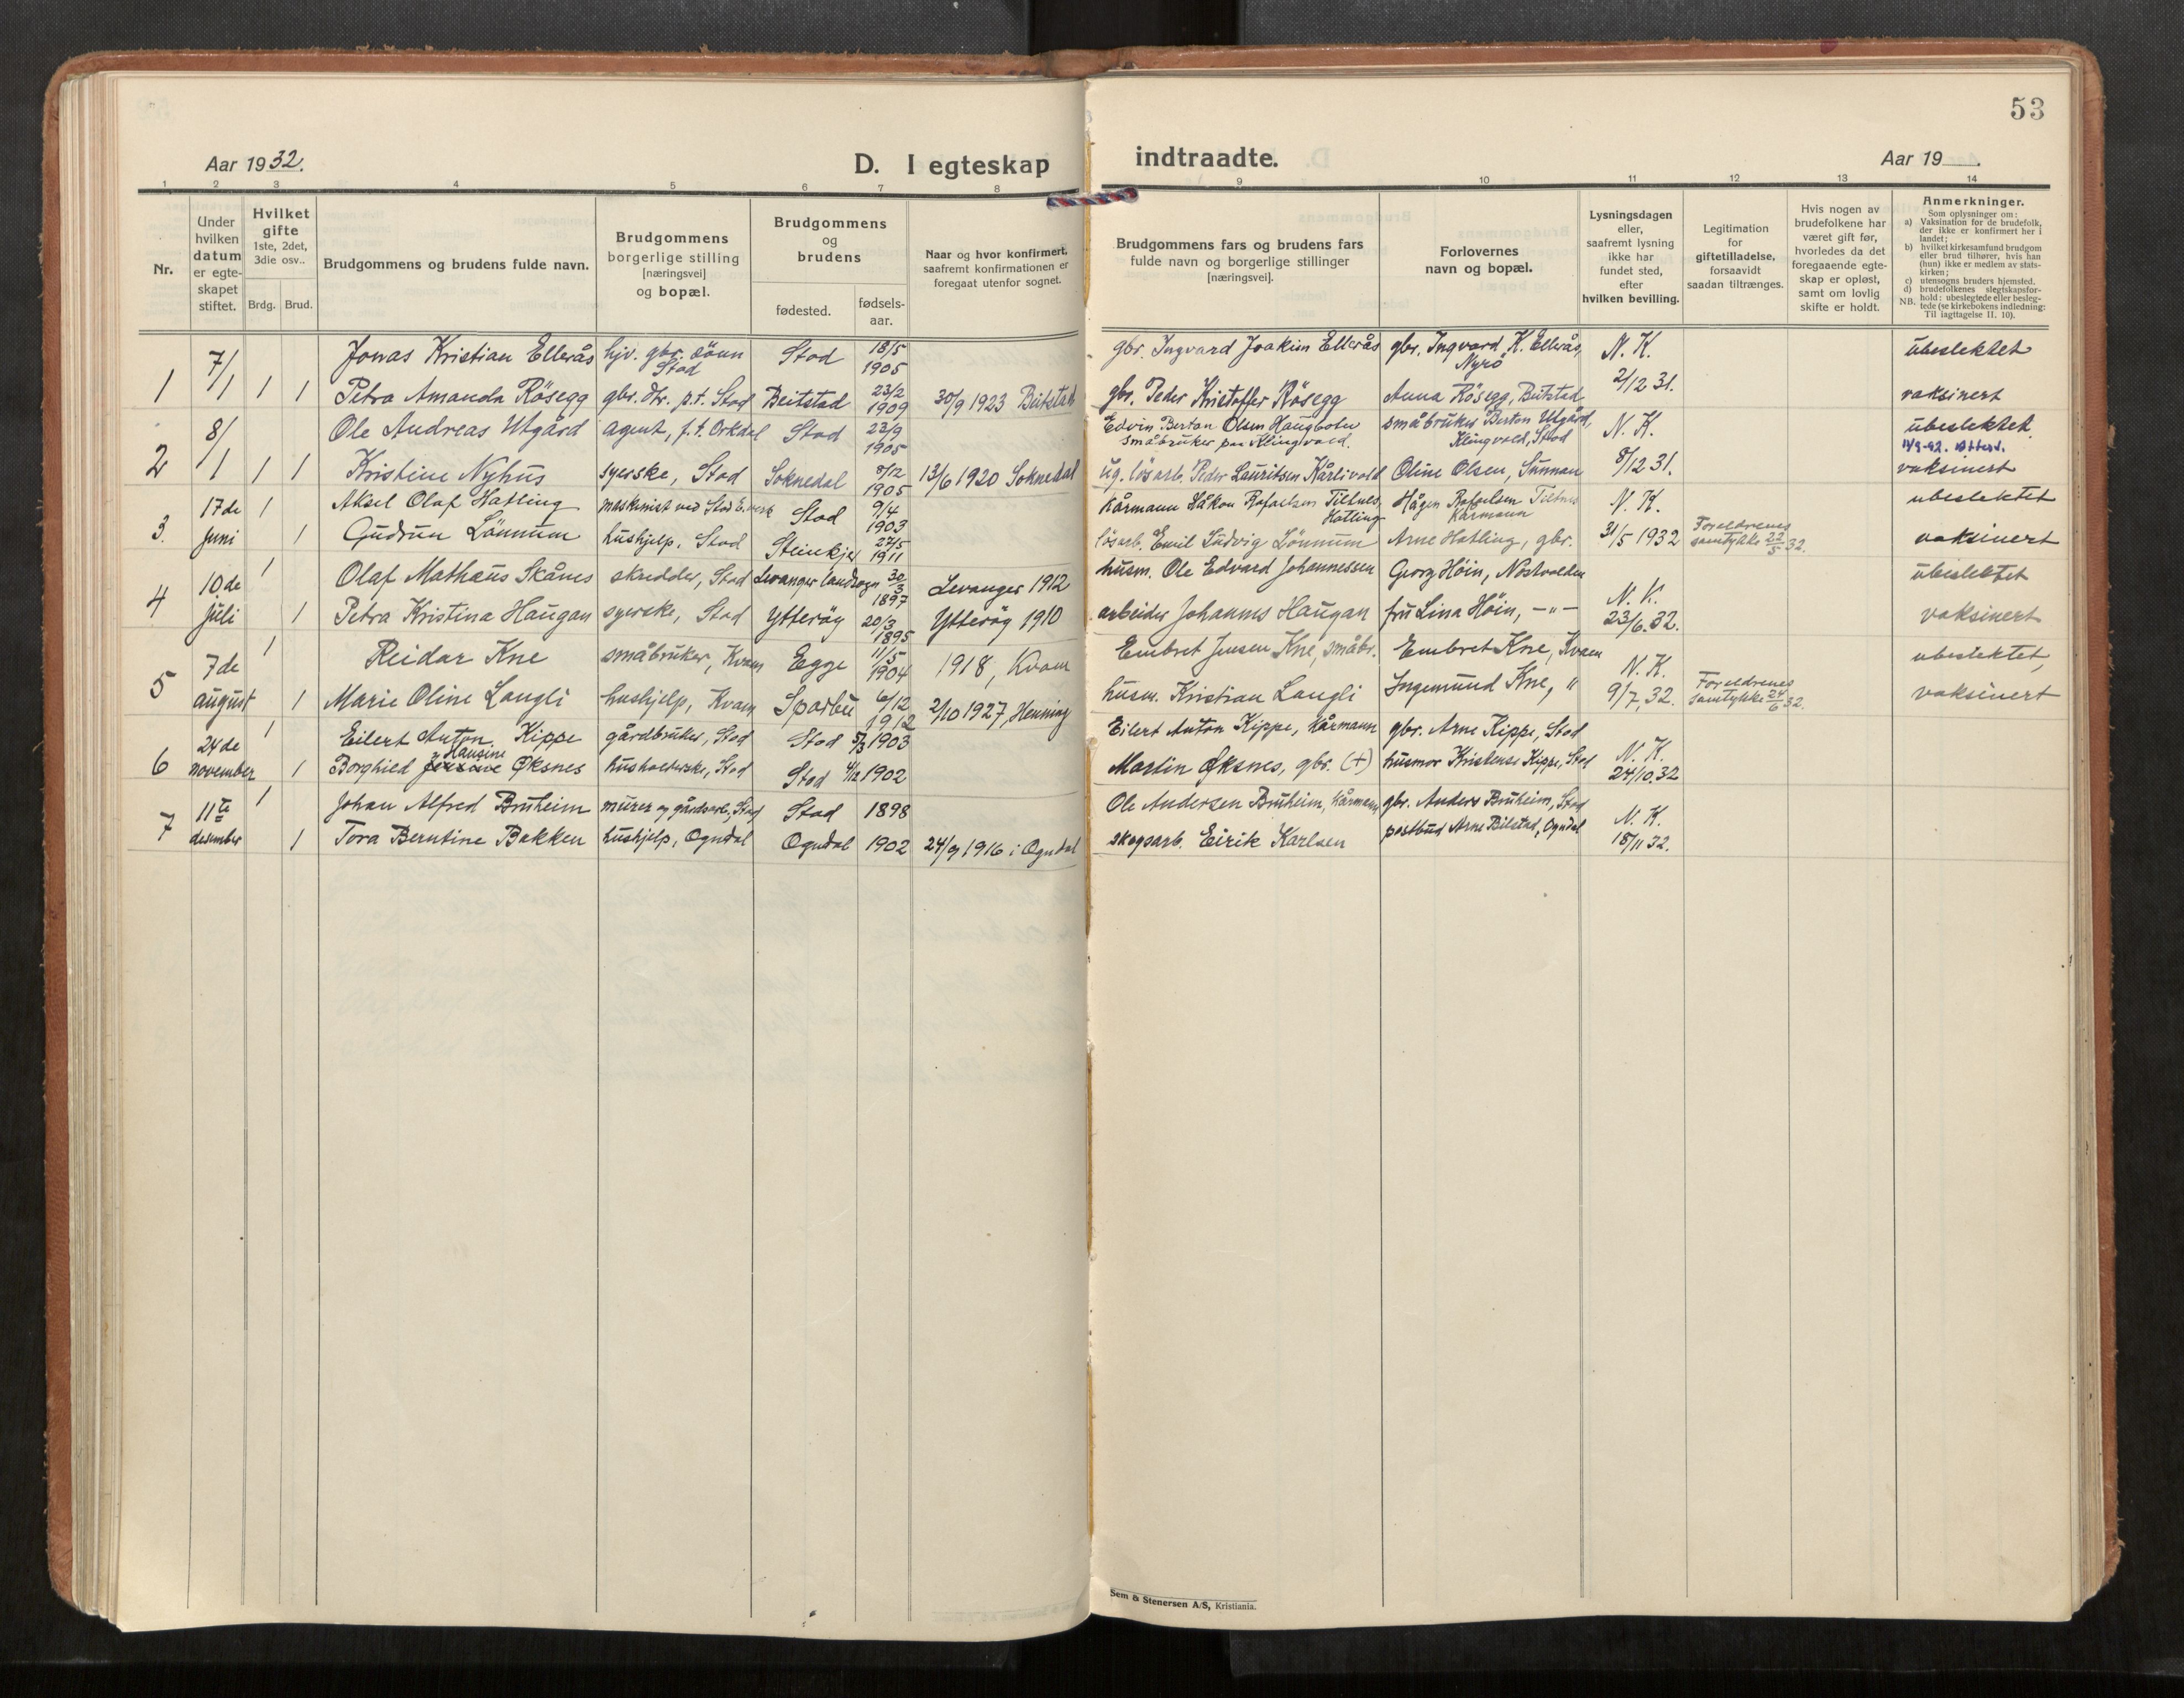 53
Aar 1932.
D. I egteskap indtraadte.
Aar 19
1 2 3 4 5 6 7 8 9 10 11 12 13 14
Nr.
Under hvilken datum er egteskapet stiftet.
Hvilket gifte 1ste, 2det, 3die osv..
Brdg. Brud.
Brudgommens og brudens fulde navn.
Brudgommens borgerlige stilling [næringsvei] og bopæl.
Brudgommens og brudens
fødested. fødsels-aar.
Naar og hvor konfirmert, saafremt konfirmationen er foregaat utenfor sognet.
Brudgommens fars og brudens fars fulde navn og borgerlige stillinger [næringsvei].
Forlovernes navn og bopæl.
Lysningsdagen eller, saafremt lysning ikke har fundet sted, efter hvilken bevilling.
Legitimation for giftetilladelse, forsaavidt saadan tiltrænges.
Hvis nogen av brudefolkene har været gift før, hvorledes da det foregaaende egteskap er opløst, samt om lovlig skifte er holdt.
Anmerkninger.
Som oplysninger om:
a) Vaksination for de brudefolk, der ikke er konfirmert her i landet;
b) hvilket kirkesamfund brudgom eller brud tilhører, hvis han (hun) ikke er medlem av statskirken;
c) utensogns bruders hjemsted.
d) brudefolkenes slegtskapsforhold: ubeslegtede eller beslegtede (se kirkebokens indledning: Til iagttagelse II. 10).
NB.
1 7/1 1 1
Jonas Kristian Ellerås hjv. gbr. sönn Stod Stod 18/5 1905 gbr. Ingvard Joakim Ellerås gbr. Ingvard K. Ellerås, Nyrö N. K. ubeslektet
Petra Amanda Rösegg gbr. dtr. p.t. Stod Beitstad 23/2 1909 30/9 1923 Beitstad gbr. Peder Kristoffer Rösegg Anna Rösegg, Beitstad 2/12 31. vaksinert
2 8/1 1 1
Ole Andreas Utgård agent, p.t. Orkdal Stod 23/9 1905 Edvin Berton Olsen småbruker paa Klingvold. småbruker Berton Utgård, Klingvold, Stod N. K. ubeslektet.
Kristine Nyhus syerske, Stod Soknedal 8/12 1905 13/6 1920 Soknedal ug. lösarb. Peder Lauritsen Oline Olsen, Sunnan 8/12 31. vaksinert
3. 17de juni 1 1
Aksel Olaf Hatling maskinist ved Stod E.verk Stod 9/4 1903 kårmann Håkon Rafaelsen Hatling Hågen Rafaelsen Kårmann N. K. ubeslektet
Gudrun Lönnum hushjelp, Stod Steinkjer 27/5 1911 lösarb. Emil Ludvig Lönnum Arne Hatling, gbr. 31/5 1932 Foreldrenes samtykke 22/5 32. vaksinert
4 10de juli 1 1
Olaf Mathæus Skånes skredder, Stod Levanger landsogn 30/3 1897 Levanger 1912 husm. Ole Edvard Johannessen Georg Höin, Nostvolden N. K. ubeslektet
Petra Kristina Haugan syerske, Stod Ytteröy 20/3 1895 Ytteröy 1910 arbeider Johannes Haugan fru Lina Höin, -"- 23/6. 32. vaksinert
5 7de august 1 1
Reidar Kne småbruker, Kvam Egge 11/5 1904 1918, Kvam Embret Jensen Kne, småbr. Embret Kne, Kvam N. K. ubeslektet,
Marie Oline Langli hushjelp, Kvam Sparbu 6/12 1912 2/10 1927, Henning husm. Kristian Langli Ingemund Kne, " 9/7, 32. Foreldrenes samtykke 24/6 32. vaksinert
6 24de november 1 1
Eilert Anton Kippe gårdbruker, Stod Stod 5/3 1903 Eilert Anton Kippe, kårmann gbr. Arne Kippe, Stod N. K.
Borghild Hansine Øksnes husholderske, Stod Stod 4/12 1902 Martin Øksnes, gbr. (+) husmor Kristense Kippe, Stod 24/10. 32
7 11te desember 1 1
Johan Alfred Bruheim murer og gårdsarb., Stod Stod 1898 Ole Andersen Bruheim, kårmann gbr. Anders Bruheim, Stod N. K.
Tora Berntine Bakken hushjelp, Ogndal Ogndal 1902 24/9 1916 i Ogndal skogsarb. Eirik Karlsen postbud Arne Bilstad, Ogndal 18/11 32.
Sem & Stenersen A/S, Kristiania.